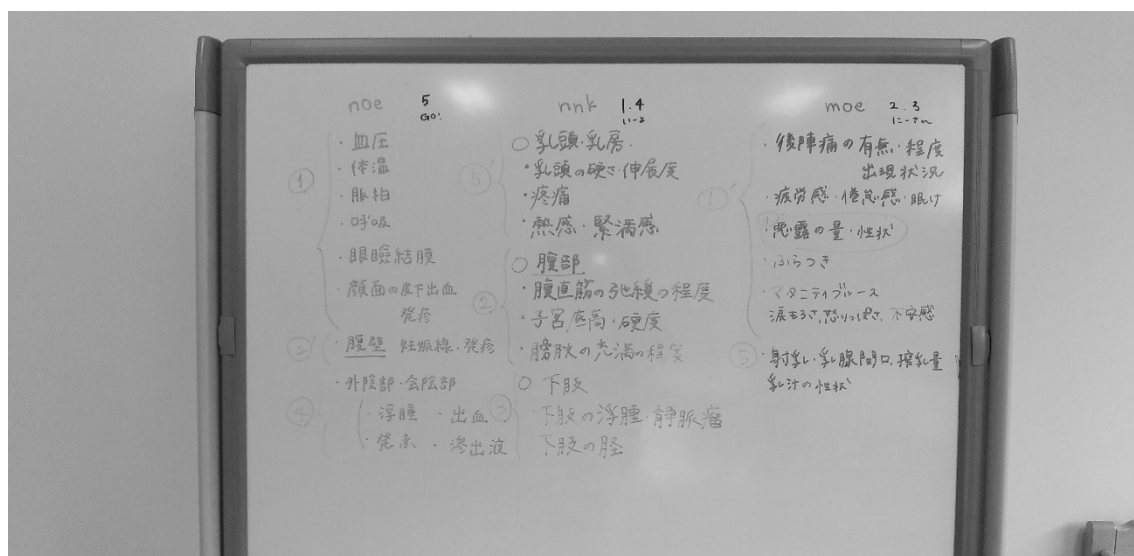 noe 5
GO!
① ・血圧
・体温
・脈拍
・呼吸
・眼瞼結膜
・顔面の皮下出血
発疹
②' ・腹壁 妊娠線・発疹
・外陰部・会陰部
④ ・浮腫 ・出血
・発赤 ・滲出液
nnk 1.4
いーよ
⑤ ○乳頭・乳房・
・乳頭の硬さ・伸展度
・疼痛
・熱感・緊満感
② ○腹部
・腹直筋の弛緩の程度
・子宮底高・硬度
・膀胱の充満の程度
③ ○下肢
・下肢の浮腫・静脈瘤
下肢の
moe 2.3
にーさん
①' ・後陣痛の有無・程度
出現状況
・疲労感・倦怠感・眠け
・悪露の量・性状
・ふらつき
・マタニティブルース
涙もろさ、怒りっぽさ、不安感
⑤ ・射乳・乳腺開口、搾乳量
乳汁の性状